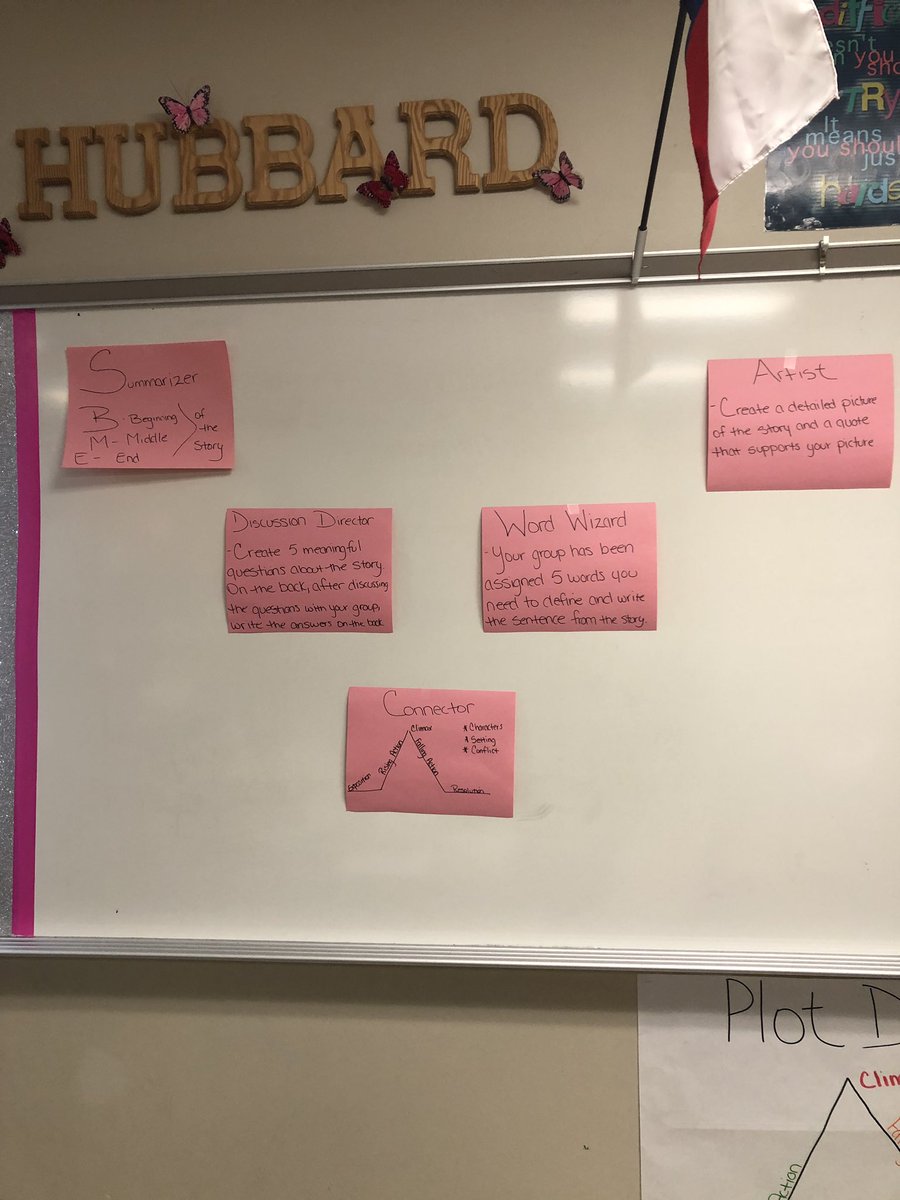 HUBBARD
diffic
esn't
n you
sho
TRy
It
means
you shoul
just
harde
Summarizer
B - Beginning
M - Middle
E - End
of
the
Story
Artist
- Create a detailed picture
of the story and a quote
that supports your picture
Discussion Director
- Create 5 meaningful
questions about the story.
On the back, after discussing
the questions with your group,
write the answers on the back
Word Wizard
- Your group has been
assigned 5 words you
need to define and write
the sentence from the story.
Connector
Climax
* Characters
* Setting
* Conflict
Rising Action
Falling Action
Resolution
Plot D
Clim
Action